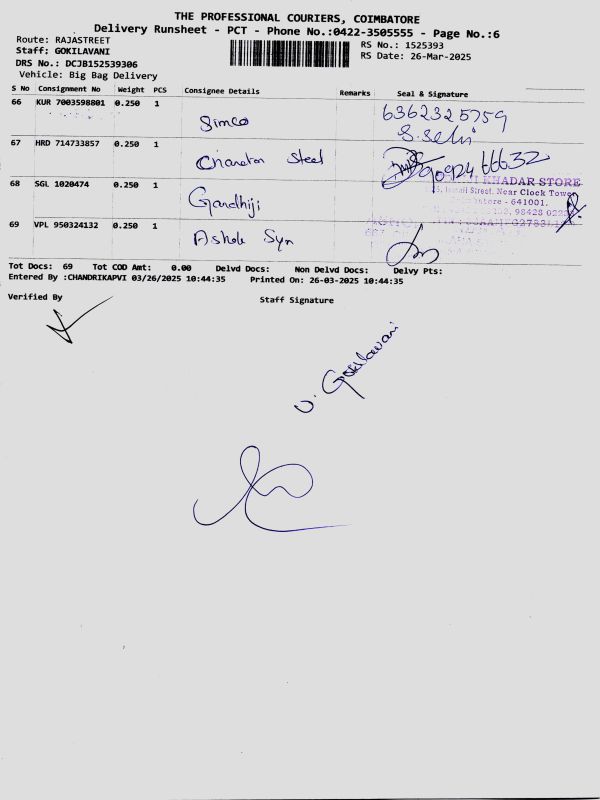 THE PROFESSIONAL COURIERS, COIMBATORE
Delivery Runsheet - PCT - Phone No.:0422-3505555 - Page No.:6
Route: RAJASTREET
Staff: GOKILAVANI
DRS No.: DCJB152539306
Vehicle: Big Bag Delivery
RS No.: 1525393
RS Date: 26-Mar-2025
S No Consignment No Weight PCS Consignee Details Remarks Seal & Signature
66 KUR 7003598801 0.250 1 Simco 6362325759
S.Selvi
67 HRD 714733857 0.250 1 Chandra Steel 9092466632
KHADAR STORE
Street, Near Clock Tower
641001.
68 SGL 1020474 0.250 1 Gandhiji
69 VPL 950324132 0.250 1 Ashok Syn
Tot Docs: 69 Tot COD Amt: 0.00 Delvd Docs: Non Delvd Docs: Delvy Pts:
Entered By :CHANDRIKAPVI 03/26/2025 10:44:35 Printed On: 26-03-2025 10:44:35
Verified By Staff Signature
V. Gokilavani